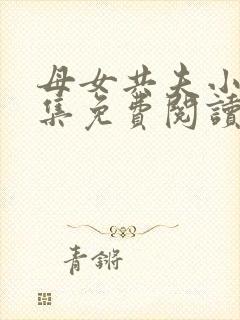 母女共夫小
集免費閱讀
青鏘